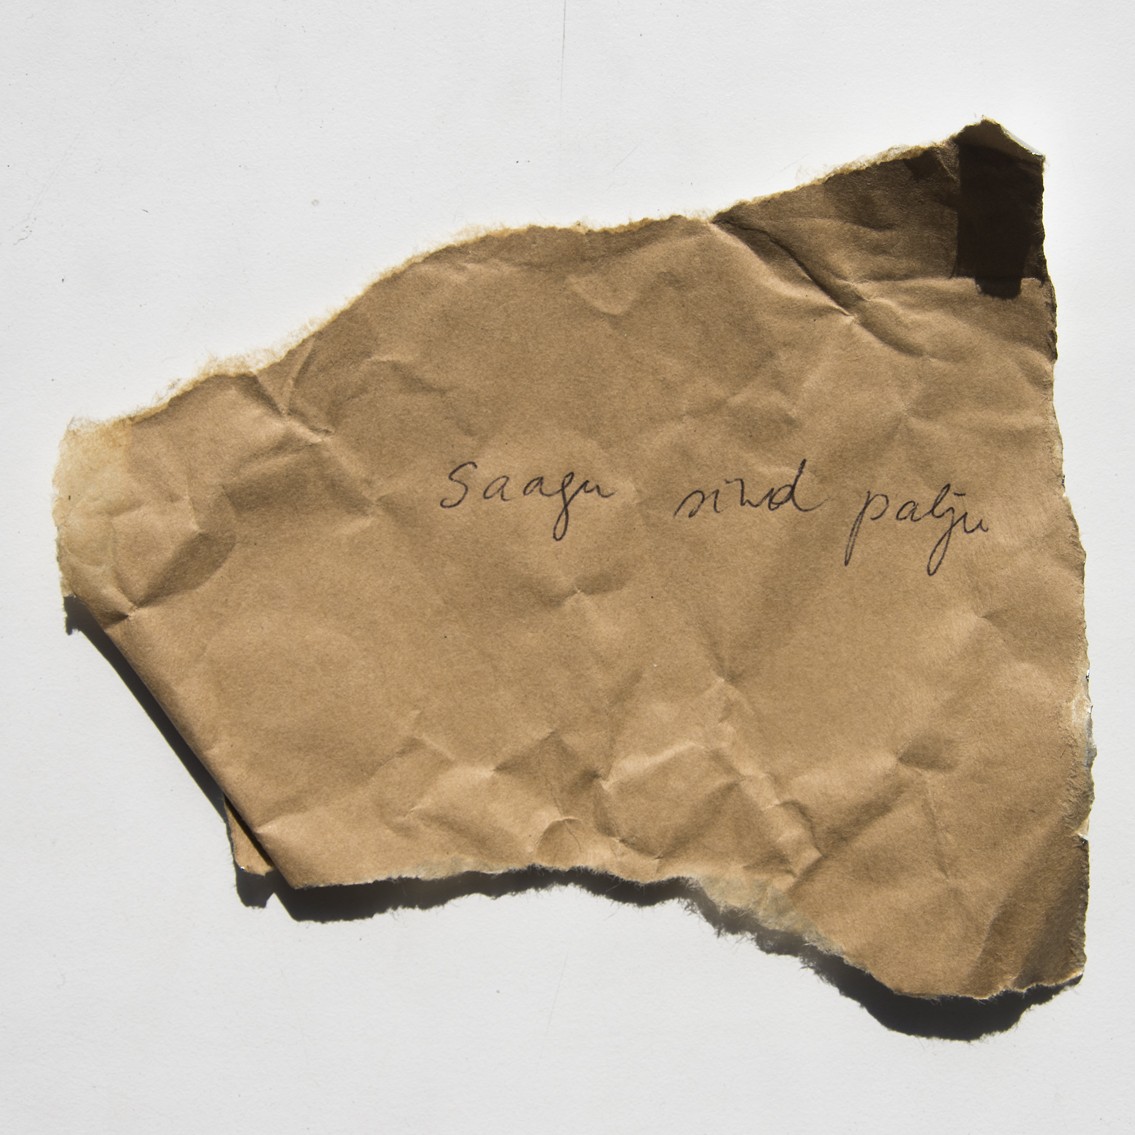 Saagu sind palju